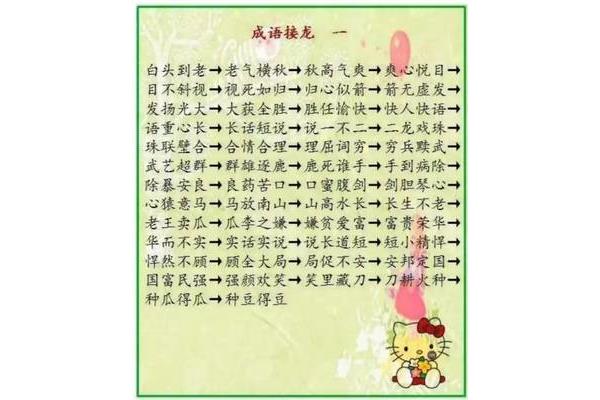 成语接龙 一
白头到老➞老气横秋➞秋高气爽➞爽心悦目➞
目不斜视➞视死如归➞归心似箭➞箭无虚发➞
发扬光大➞大获全胜➞胜任愉快➞快人快语➞
语重心长➞长话短说➞说一不二➞二龙戏珠➞
珠联璧合➞合情合理➞理屈词穷➞穷兵黩武➞
武艺超群➞群雄逐鹿➞鹿死谁手➞手到病除➞
除暴安良➞良药苦口➞口蜜腹剑➞剑胆琴心➞
心猿意马➞马放南山➞山高水长➞长生不老➞
老王卖瓜➞瓜李之嫌➞嫌贫爱富➞富贵荣华➞
华而不实➞实话实说➞说长道短➞短小精悍➞
悍然不顾➞顾全大局➞局促不安➞安邦定国➞
国富民强➞强颜欢笑➞笑里藏刀➞刀耕火种➞
种瓜得瓜➞种豆得豆